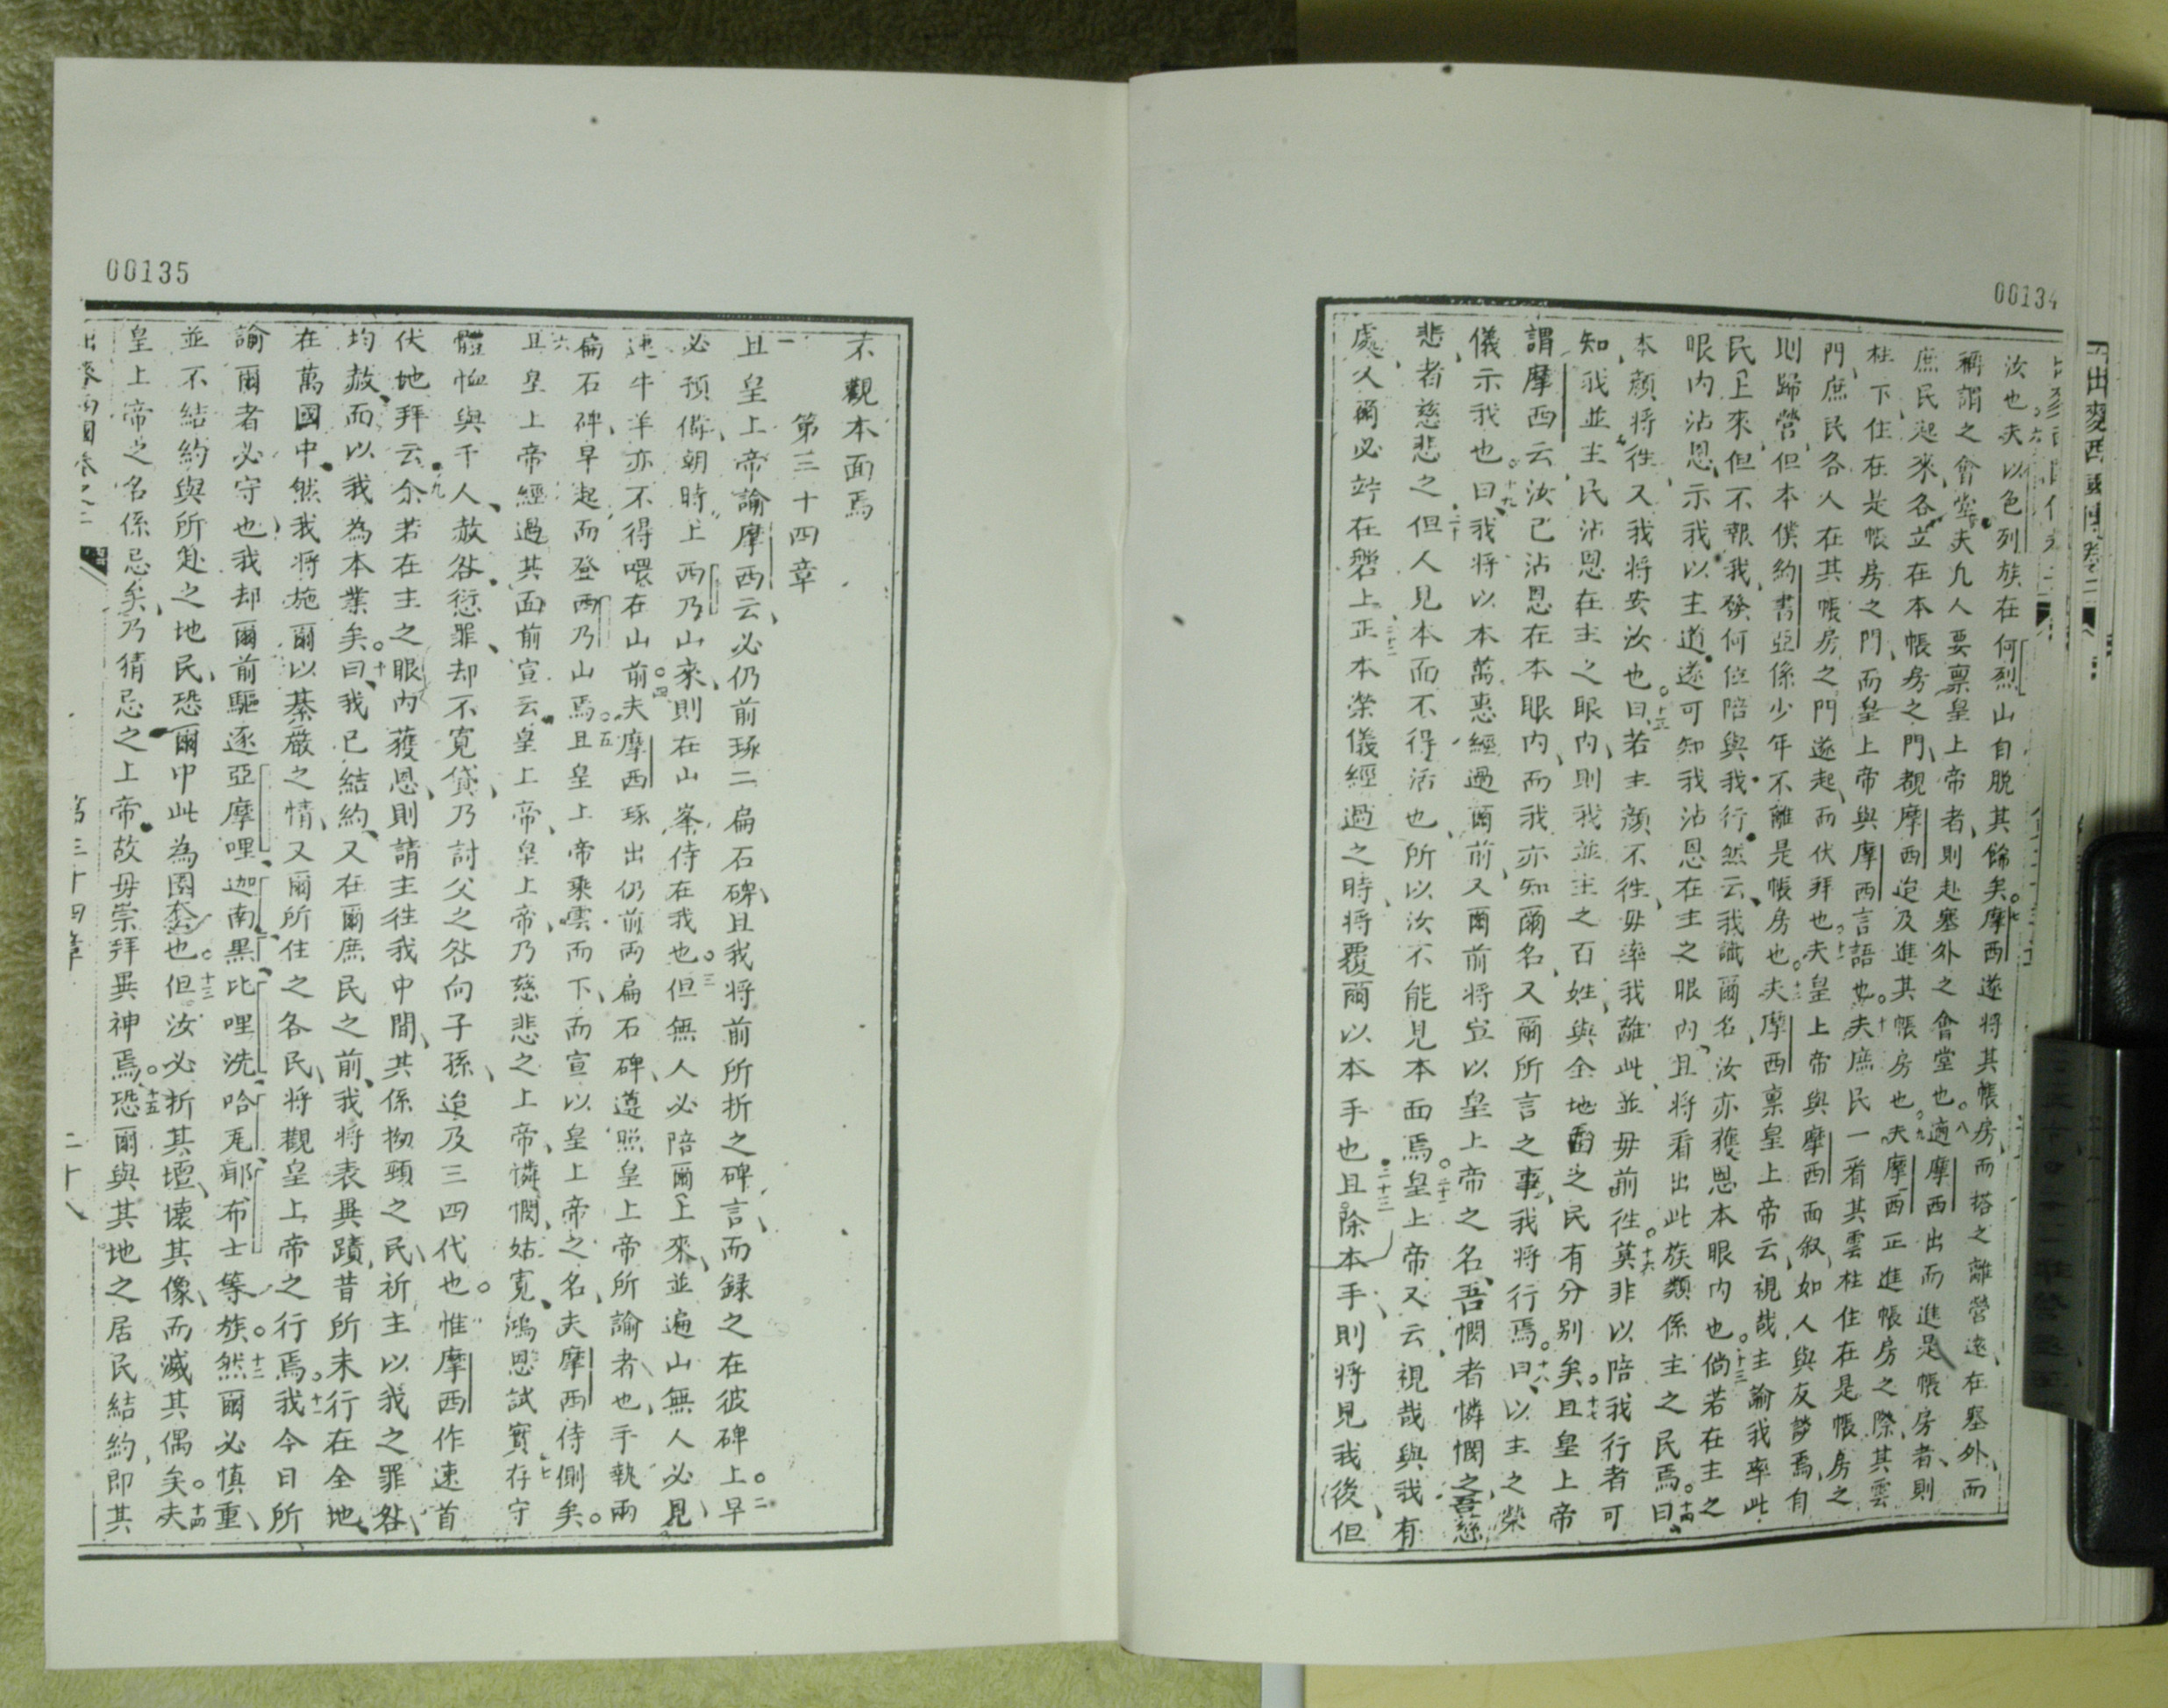 00134
汝也夫以色列族在何烈山自脫其餙矣摩西遂將其帳房而搭之離營遠在塞外而
稱謂之會堂夫凢人要禀皇上帝者則赴塞外之會堂也適摩西出而進是帳房者則
庶民起來各立在本帳房之門覩摩西迨及進其帳房也夫摩西正進帳房之際其雲
柱下住在是帳房之門而皇上帝與摩西言語也夫庶民一看其雲柱住在是帳房之
門庶民各人在其帳房之門遂起而伏拜也夫皇上帝與摩西面叙如人與友談焉有
則歸營但本僕約書亞係少年不離是帳房也夫摩西禀皇上帝云視哉主諭我率此
民上來但不報我發何位陪與我行然云我識爾名汝亦獲恩本眼内也倘若在主之
眼内沾恩示我以主道遂可知我沾恩在主之眼内且將看出此族類係主之民焉曰
本顔將徃又我將安汝也曰若主顔不徃毋率我離此並毋前徃莫非以陪我行者可
知我並主民沾恩在主之眼内則我並主之百姓與全地面之民有分别矣且皇上帝
謂摩西云汝已沾恩在本眼内而我亦知爾名又爾所言之事我將行焉曰以主之榮
儀示我也曰我將以本萬惠經過爾前又爾前將宣以皇上帝之名吾憫者憐憫之吾慈
悲者慈悲之但人見本面不得活也所以汝不能見本面焉皇上帝又云視哉與我有
處乂爾必站在磐上正本榮儀經過之時將覆爾以本手也且除本手則將見我後但
00135
不觀本面焉
第三十四章
一且皇上帝諭摩西云必仍前琢二扁石碑且我將前所折之碑言而録之在彼碑上早
必預備朝時上西乃山來則在山峯侍在我也但無人必陪爾上來並遍山無人必見
連牛羊亦不得喂在山前夫摩西琢出仍前兩扁石碑遵照皇上帝所諭者也手執兩
扁石碑早起而登西乃山焉且皇上帝乘雲而下而宣以皇上帝之名夫摩西侍側矣
六且皇上帝經過其面前宣云皇上帝皇上帝乃慈悲之上帝憐憫姑寛鴻恩試實存守
體恤與千人赦咎愆罪却不寛貸乃討父之咎向子孫迨及三四代也惟摩西作速首
伏地拜云余若在主之眼内獲恩則請主徃我中間其係拗頸之民祈主以我之罪咎
均赦而以我為本業矣曰我已結約又在爾庶民之前我將表異蹟昔所未行在全地
在萬國中然我將施爾以綦嚴之情又爾所住之各民將觀皇上帝之行焉我今日所
諭爾者必守也我却爾前驅逐亞摩哩迦南黑比哩洗哈耶布士等族然爾必慎重
並不結約與所赴之地民恐爾中此為圏套也但汝必折其壇壞其像而滅其偶矣夫
皇上帝之名係忌矣乃猜忌之上帝故毋崇拜異神焉恐爾與其地之居民結約即其
第三十四章
二十八